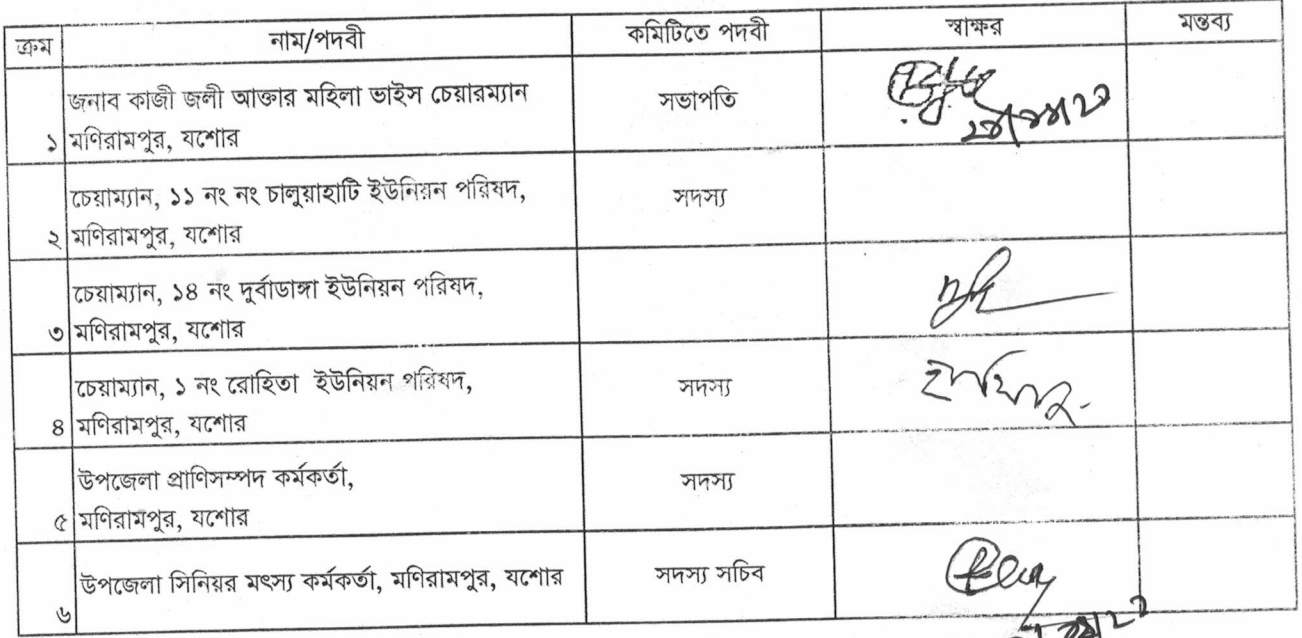 ক্রম নাম/পদবী কমিটিতে পদবী স্বাক্ষর মন্তব্য
জনাব কাজী জলী আক্তার মহিলা ভাইস চেয়ারম্যান সভাপতি
১ মণিরামপুর, যশোর
চেয়াম্যান, ১১ নং নং চালুয়াহাটি ইউনিয়ন পরিষদ, সদস্য
২ মণিরামপুর, যশোর
চেয়াম্যান, ১৪ নং দুর্বাডাঙ্গা ইউনিয়ন পরিষদ,
৩ মণিরামপুর, যশোর
চেয়াম্যান, ১ নং রোহিতা ইউনিয়ন পরিষদ, সদস্য
৪ মণিরামপুর, যশোর
উপজেলা প্রাণিসম্পদ কর্মকর্তা, সদস্য
৫ মণিরামপুর, যশোর
উপজেলা সিনিয়র মৎস্য কর্মকর্তা, মণিরামপুর, যশোর সদস্য সচিব
৬